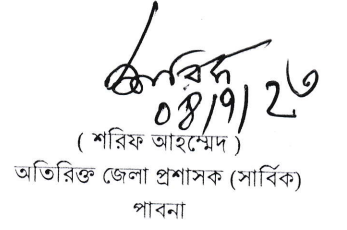 শরিফ
০৪/৭/২৩
( শরিফ আহম্মেদ )
অতিরিক্ত জেলা প্রশাসক (সার্বিক)
পাবনা